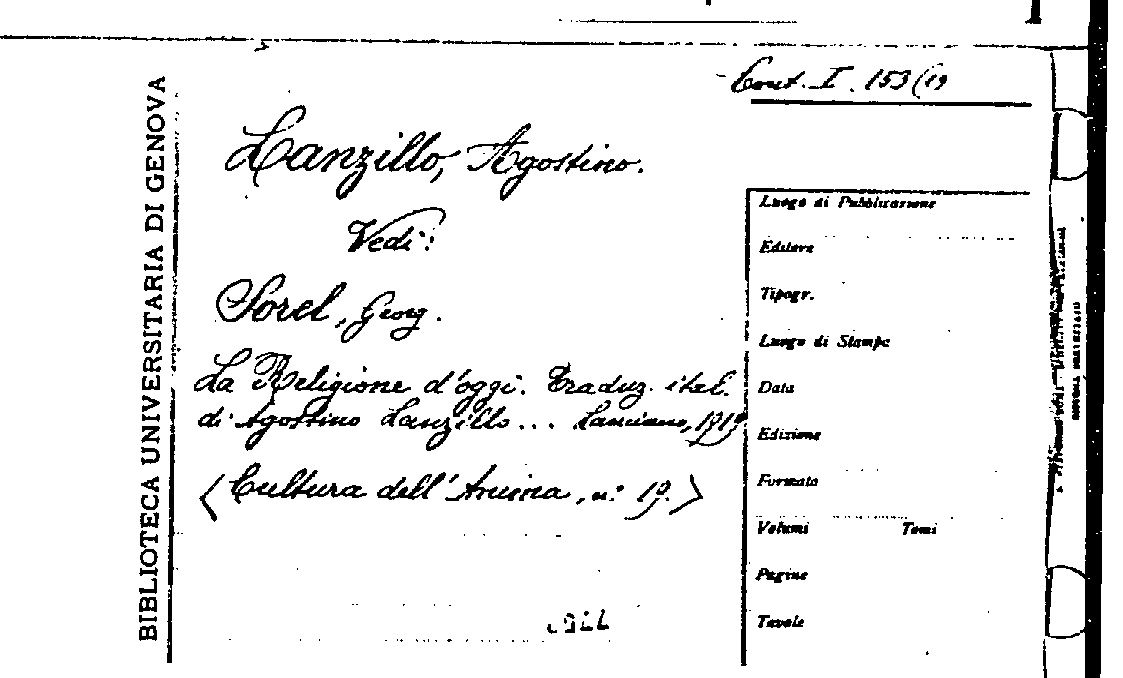 Cont. I. 153(19
BIBLIOTECA UNIVERSITARIA DI GENOVA
Lanzillo, Agostino.
Vedi:
Sorel, Georg.
La Religione d'oggi. Traduz. ital.
di Agostino Lanzillo... Lanciano,
(Cultura dell'Anima, n.° 19.)
Luogo di Pubblicazione
Editore
Tipogr.
Luogo di Stampa
Data
Edizione
Formato
Volumi Tomi
Pagine
Tavole